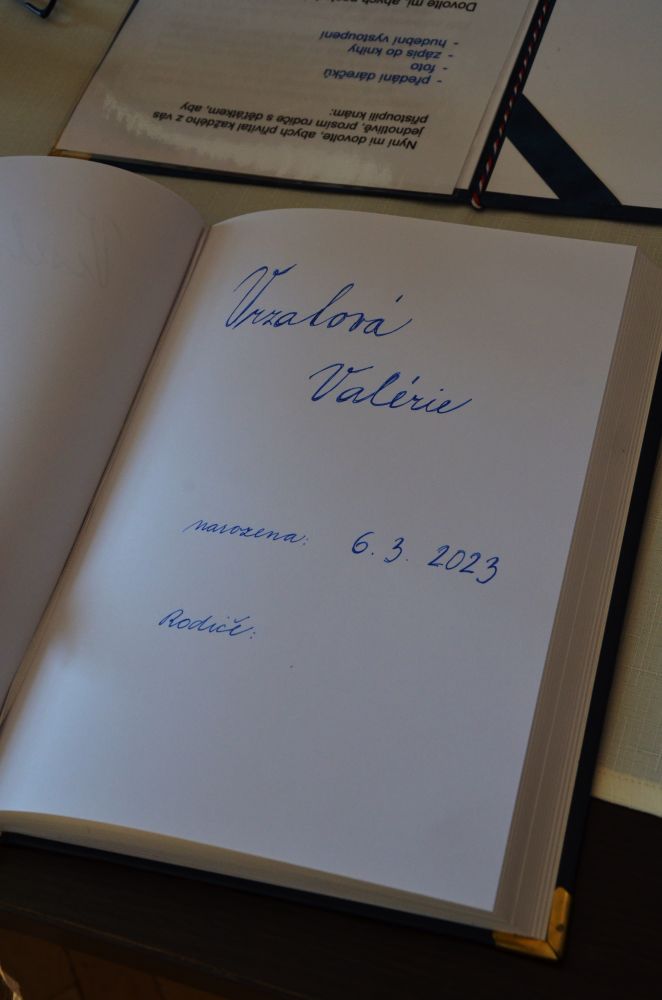 Nyní mi dovolte, abych přivítal každého z vás
jednotlivě, prosím rodiče s děťátkem, aby
přistoupili knám:
- předání dárečků
- foto
- zápis do knihy
- hudební vystoupení
Dovolte mi, abych
Vrzalová
Valérie
narozena: 6. 3. 2023
Rodiče: